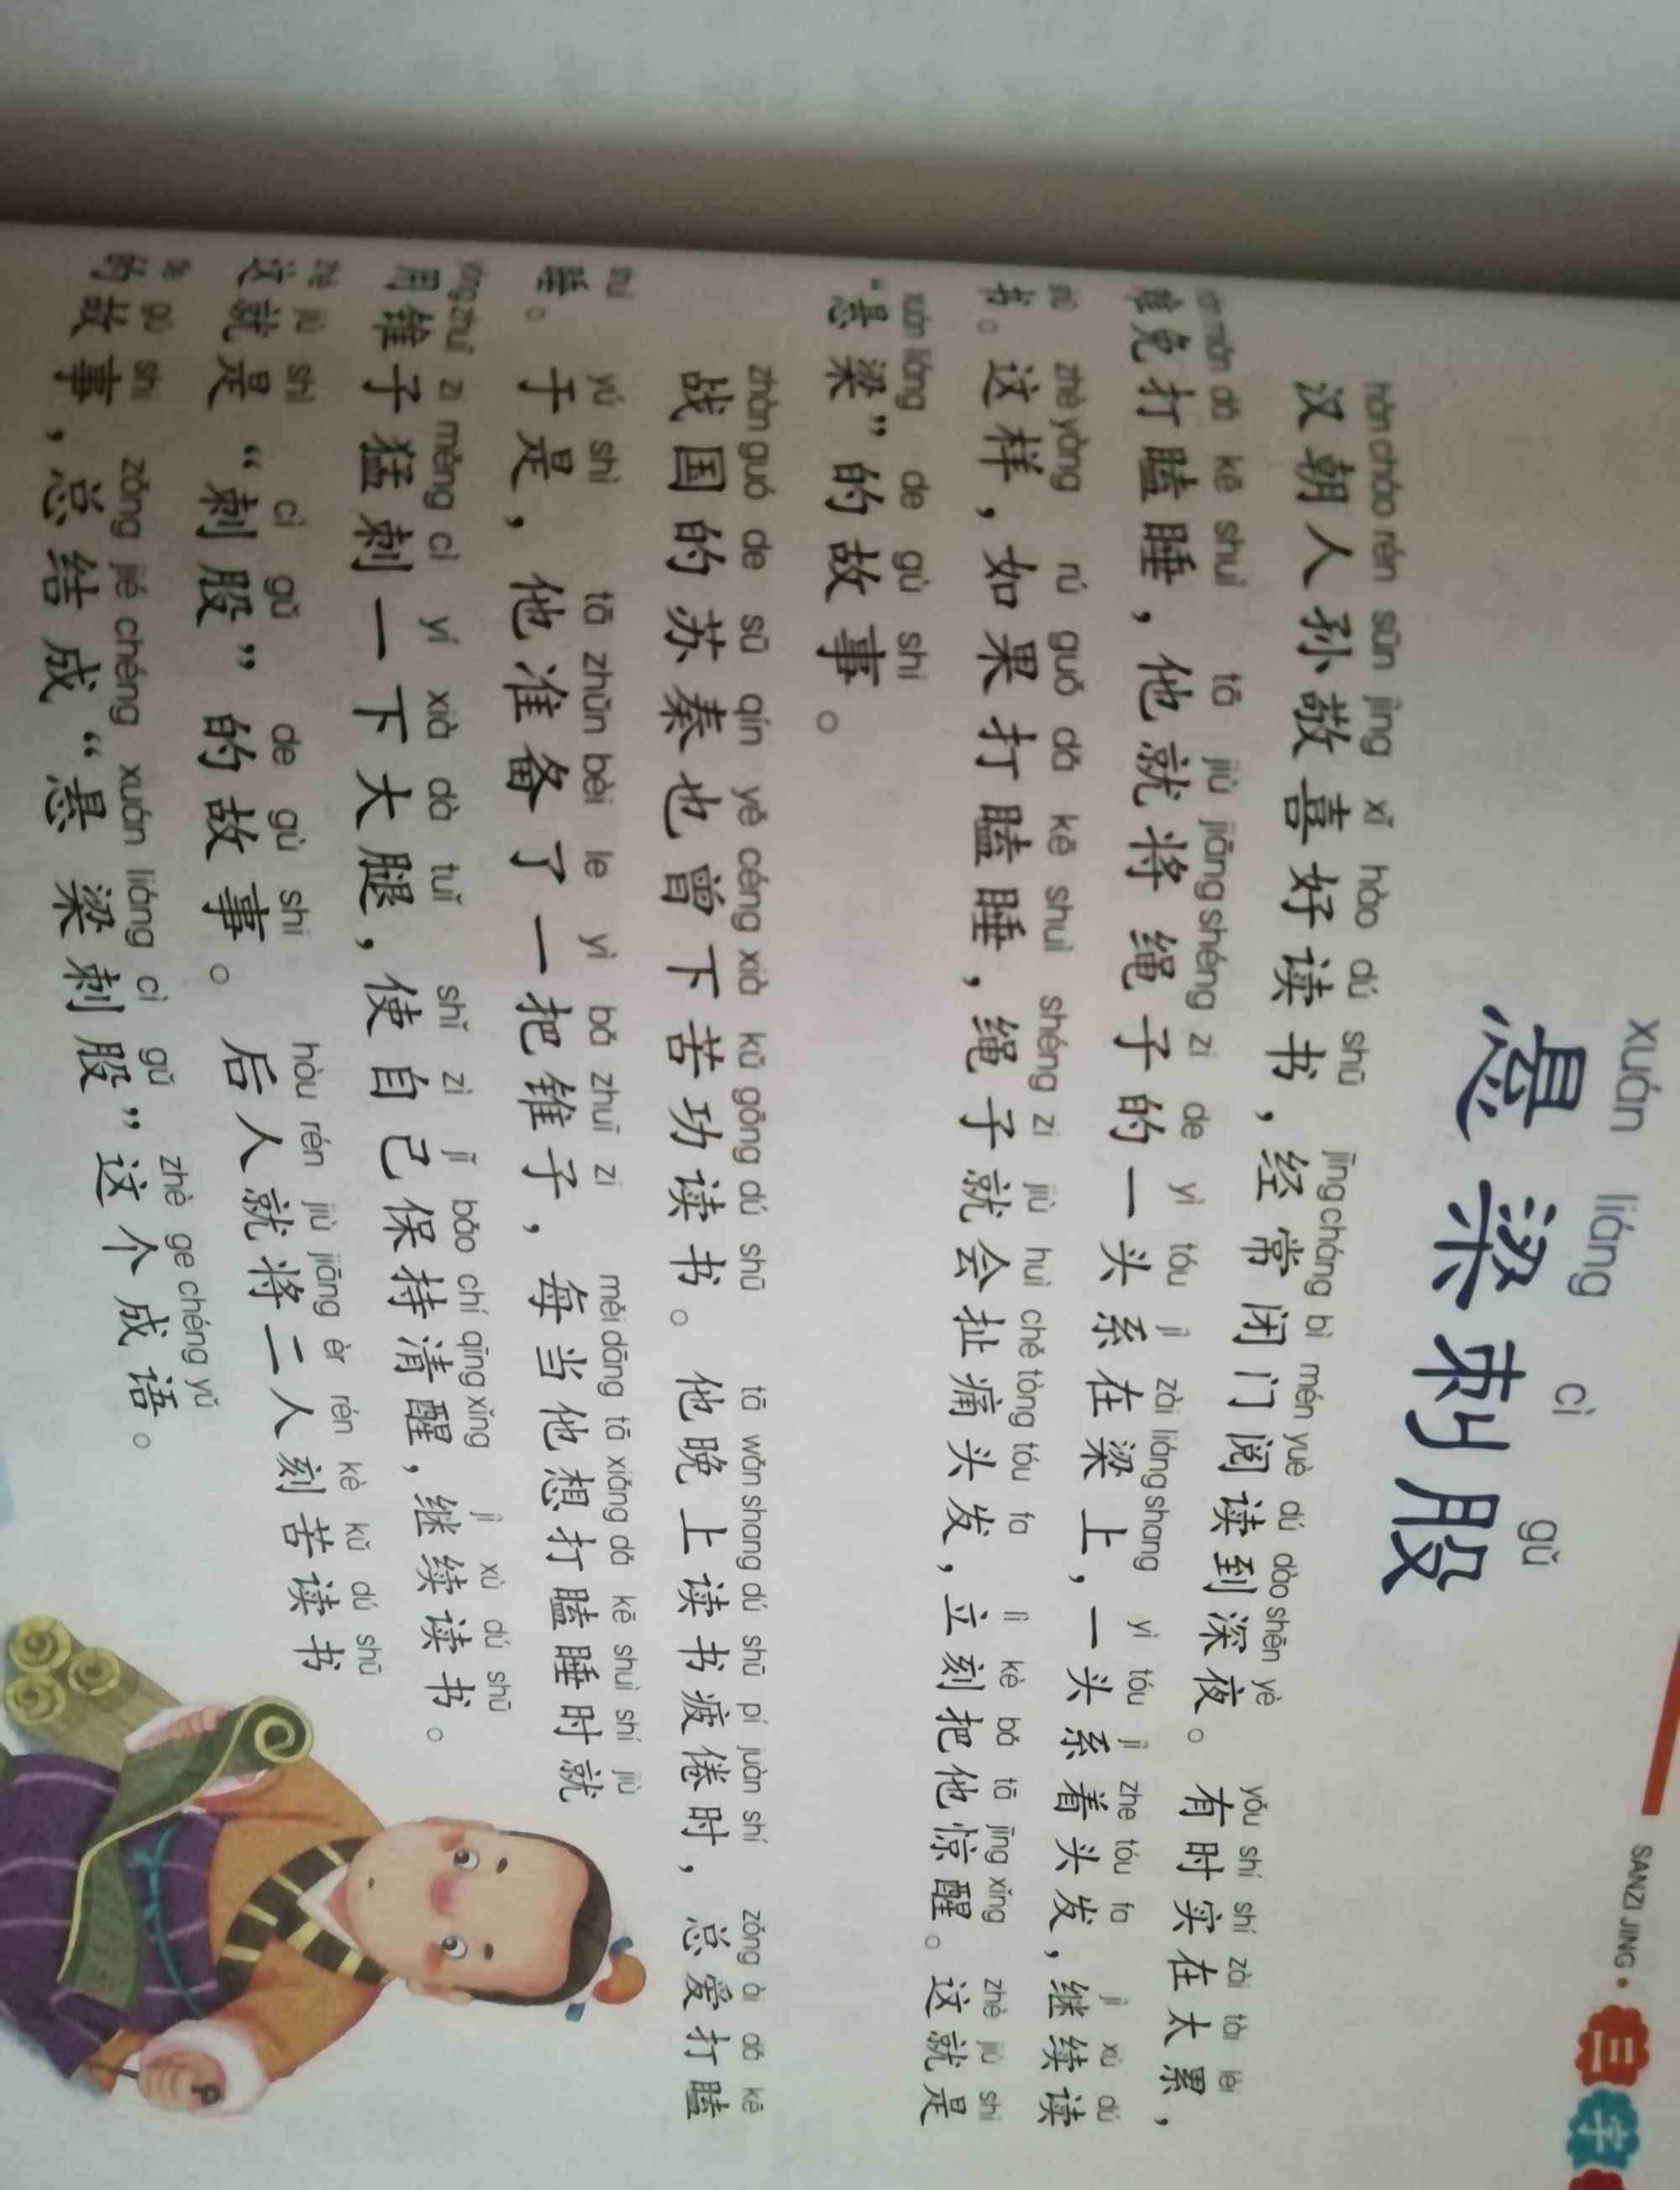 SANZI JING · 三字
xuán liáng cì gǔ
悬梁刺股
hàn cháo rén sūn jìng xǐ hào dú shū jīng cháng bì mén yuè dú dào shēn yè yǒu shí shí zài tài lèi
汉朝人孙敬喜好读书，经常闭门阅读到深夜。有时实在太累，
nán miǎn dǎ kē shuì tā jiù jiāng shéng zi de yì tóu jì zài liáng shang yì tóu jì zhe tóu fa jì xù dú
难免打瞌睡，他就将绳子的一头系在梁上，一头系着头发，继续读
shū zhè yàng rú guǒ dǎ kē shuì shéng zi jiù huì chě tòng tóu fa lì kè bǎ tā jīng xǐng zhè jiù shì
书。这样，如果打瞌睡，绳子就会扯痛头发，立刻把他惊醒。这就是
xuán liáng de gù shi
“悬梁”的故事。
zhàn guó de sū qín yě céng xià kǔ gōng dú shū tā wǎn shang dú shū pí juàn shí zǒng ài dǎ kē
战国的苏秦也曾下苦功读书。他晚上读书疲倦时，总爱打瞌
shuì yú shì tā zhǔn bèi le yì bǎ zhuī zi měi dāng tā xiǎng dǎ kē shuì shí jiù
睡。于是，他准备了一把锥子，每当他想打瞌睡时就
yòng zhuī zi měng cì yí xià dà tuǐ shǐ zì jǐ bǎo chí qīng xǐng jì xù dú shū
用锥子猛刺一下大腿，使自己保持清醒，继续读书。
zhè jiù shì cì gǔ de gù shi hòu rén jiù jiāng èr rén kè kǔ dú shū
这就是“刺股”的故事。后人就将二人刻苦读书
de gù shi zǒng jié chéng xuán liáng cì gǔ zhè ge chéng yǔ
的故事，总结成“悬梁刺股”这个成语。